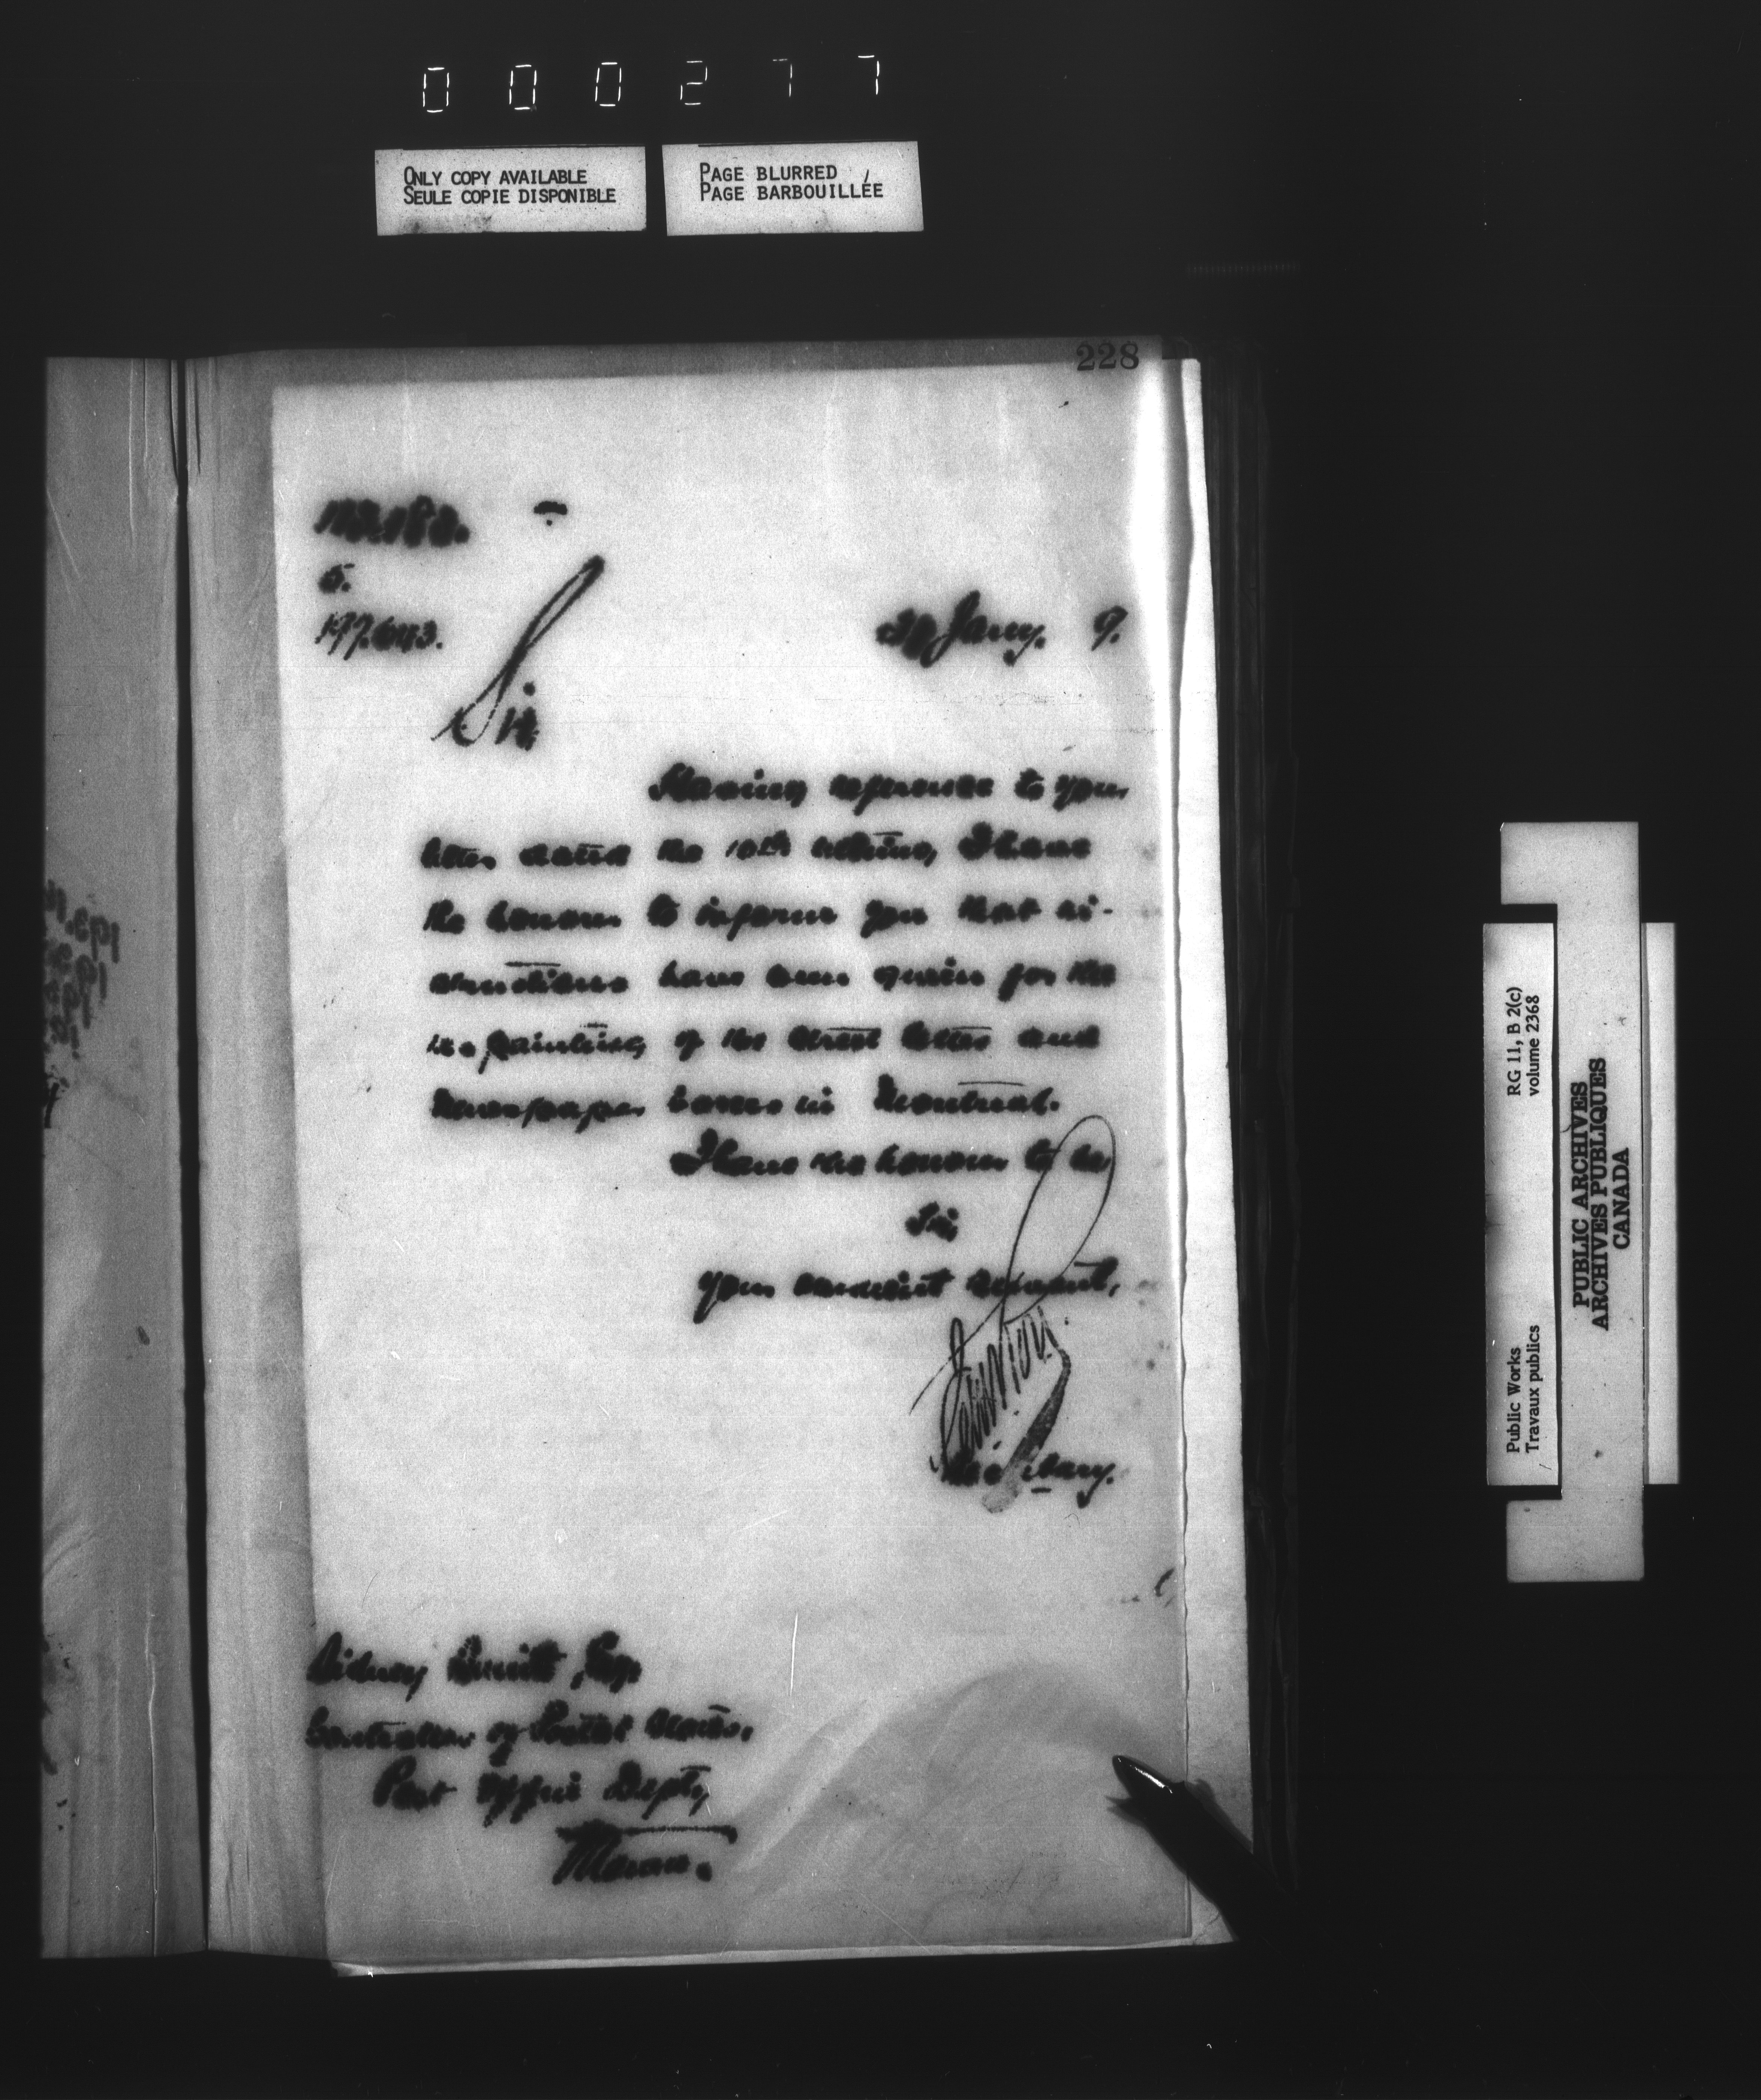 000277
ONLY COPY AVAILABLE
SEULE COPIE DISPONIBLE
PAGE BLURRED
PAGE BARBOUILLÉE
228
5.
Jany. 9.
Sir,
Having reference to your
letter dated the 10th I have
the honour to inform you that in-
structions have been given for the
re-painting of the street letter and
newspaper boxes in Montreal.
I have the honour to be
Sir,
Your obedient servant,
Secretary.
Sidney Smith, Esq.
Controller of Postal Stores.
Post Office Dept,
Ottawa.
Public Works
Travaux publics
RG 11, B 2(c)
volume 2368
PUBLIC ARCHIVES
ARCHIVES PUBLIQUES
CANADA